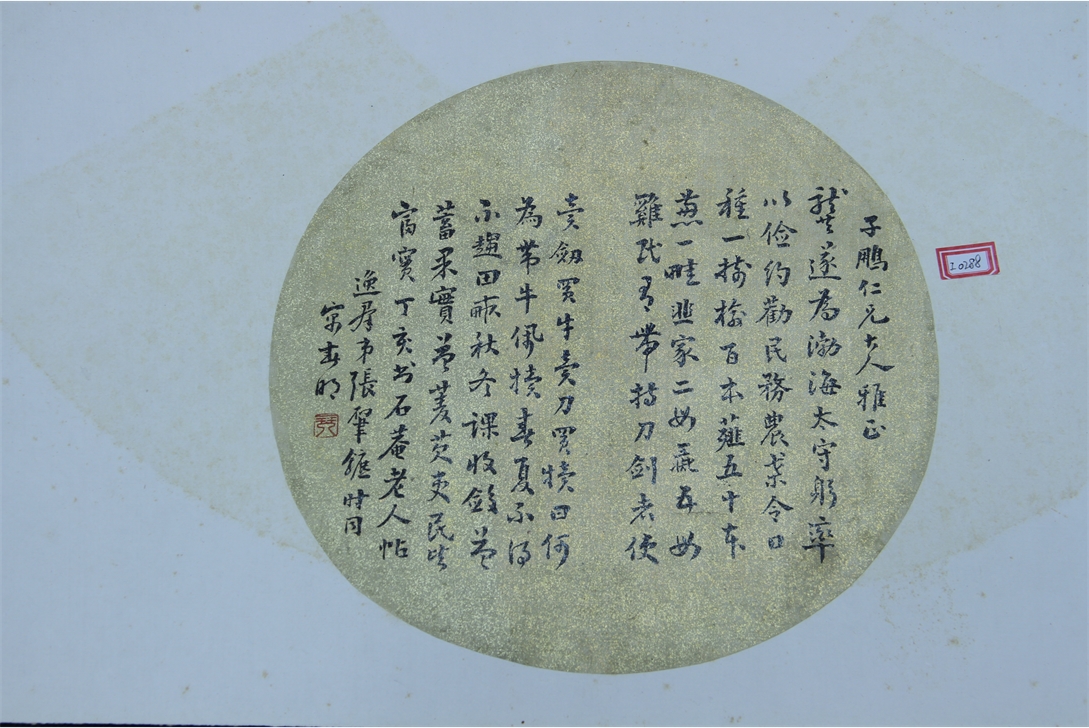 子鵬仁兄大人雅正
龔遂為渤海太守躬率
以儉約勸民務農業令口
種一樹榆百本薤五十本
蔥一畦韭家二母彘五母
雞民有帶持刀劍者使
賣劔買牛賣刀買犢曰何
為帶牛佩犢春夏不得
不趨田畝秋冬課收斂益
蓄果實益菱芡吏民皆
富實丁亥書石菴老人帖
逸羣弟張肇 時同
客春明
20288